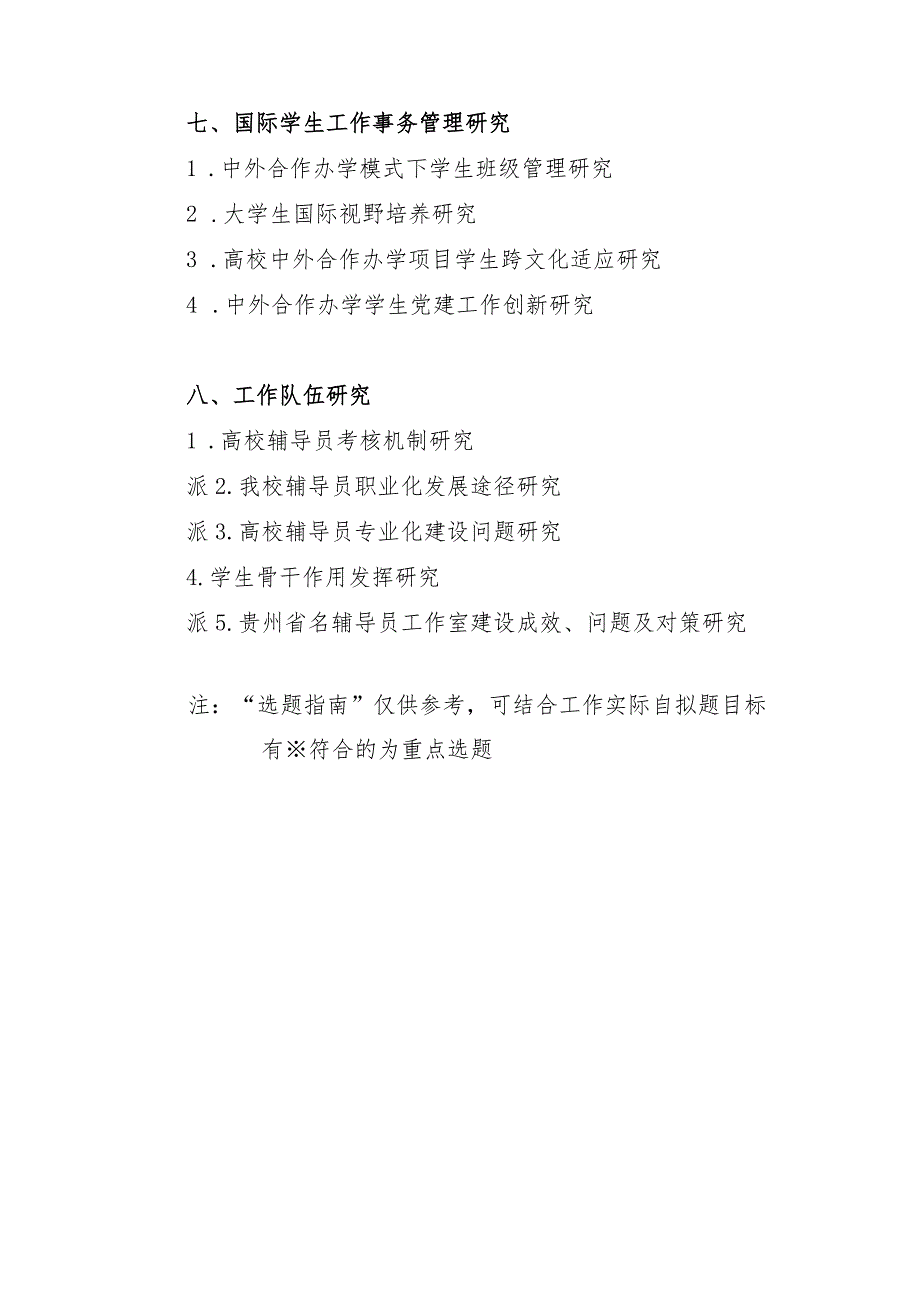 七、国际学生工作事务管理研究
1 .中外合作办学模式下学生班级管理研究
2 .大学生国际视野培养研究
3 .高校中外合作办学项目学生跨文化适应研究
4 .中外合作办学学生党建工作创新研究
八、工作队伍研究
1 .高校辅导员考核机制研究
派2.我校辅导员职业化发展途径研究
派3.高校辅导员专业化建设问题研究
4.学生骨干作用发挥研究
派5.贵州省名辅导员工作室建设成效、问题及对策研究
注：“选题指南”仅供参考，可结合工作实际自拟题目标
有※符合的为重点选题